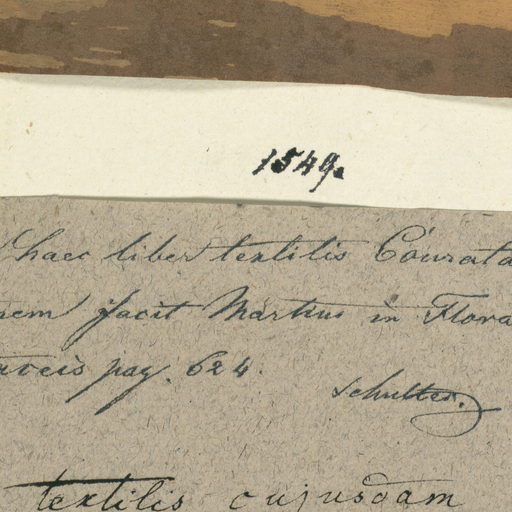 1549.
haec liber textilis Couratar
nem facit Martius in Flora
aceis pag. 624.
Schultes.
textilis cujusdam